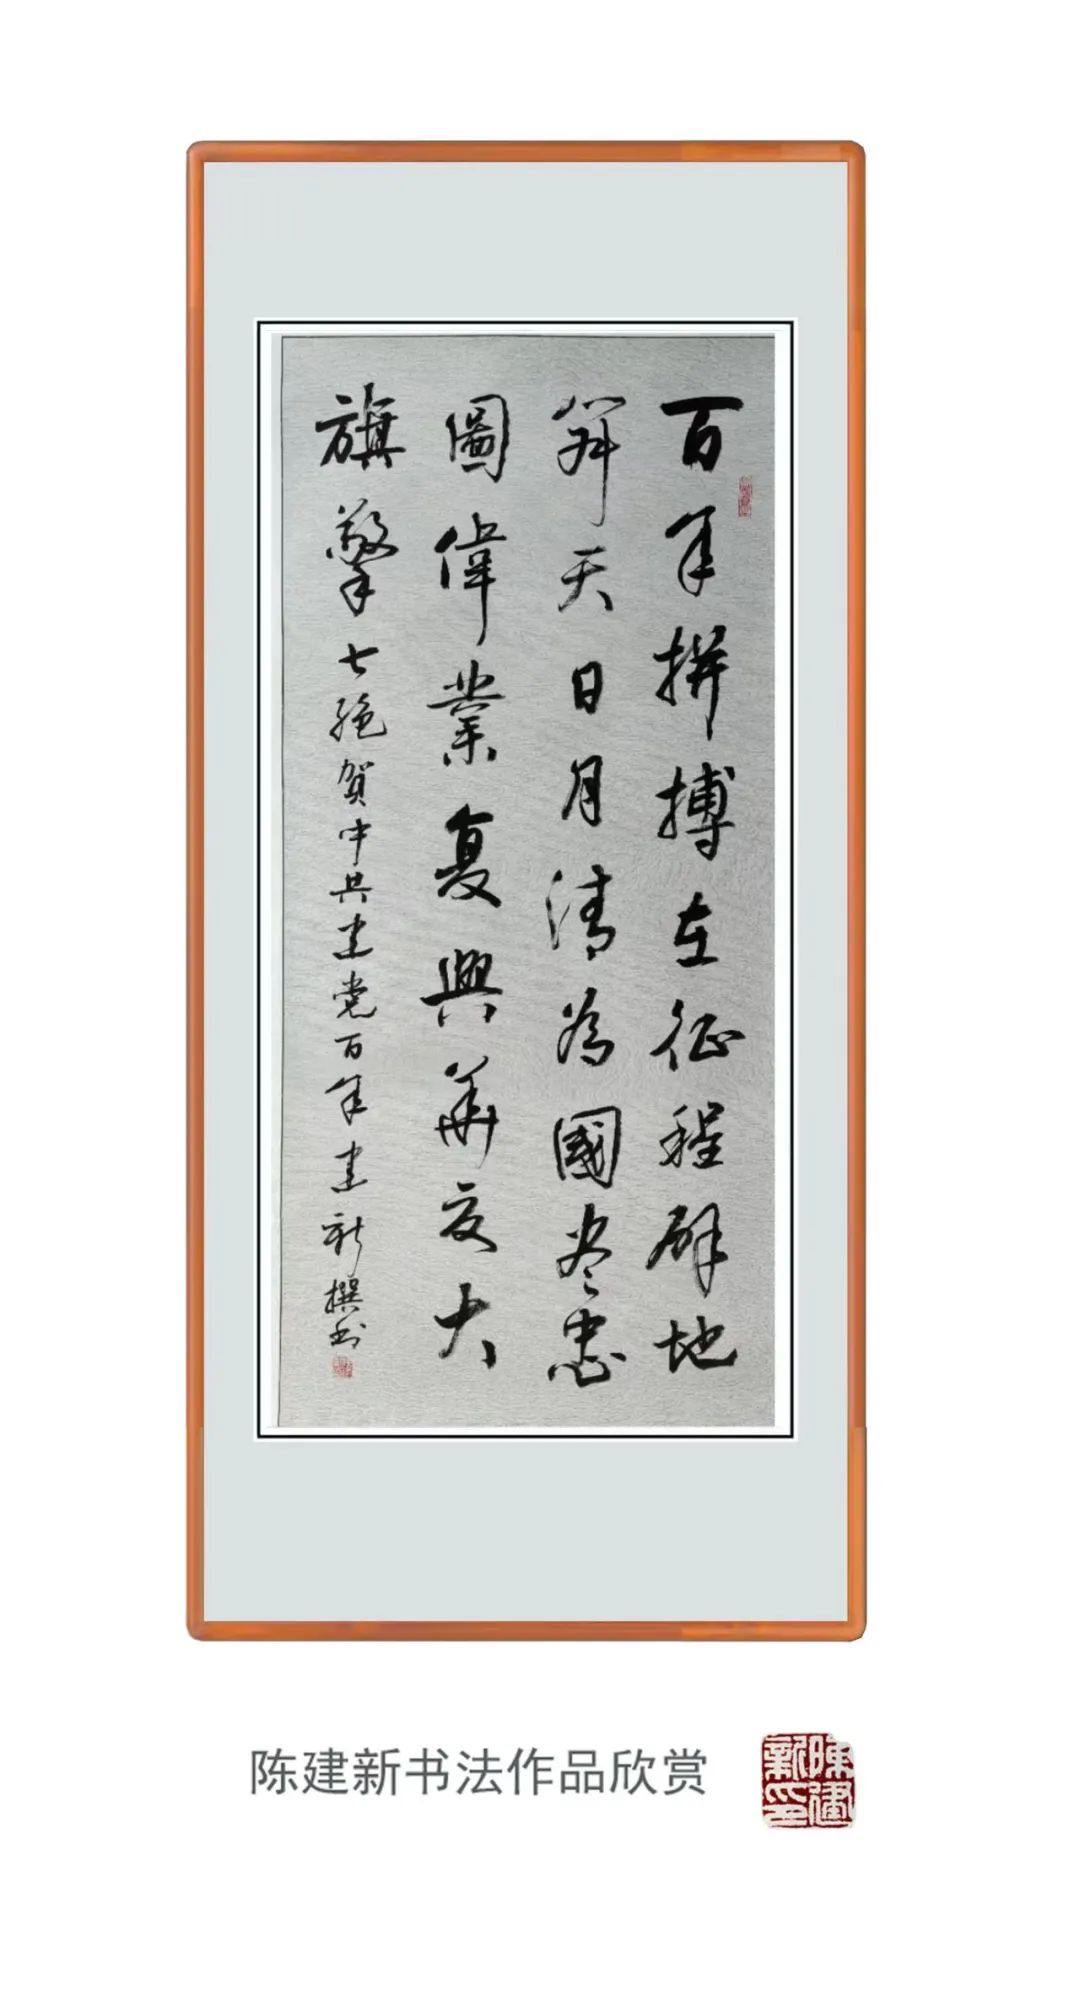 百年拼搏在征程辟地
開天日月清為國尽忠
圖偉業复興華夏大
旗擎七绝贺中共建党百年建新撰书
陈建新书法作品欣赏
陳建新印